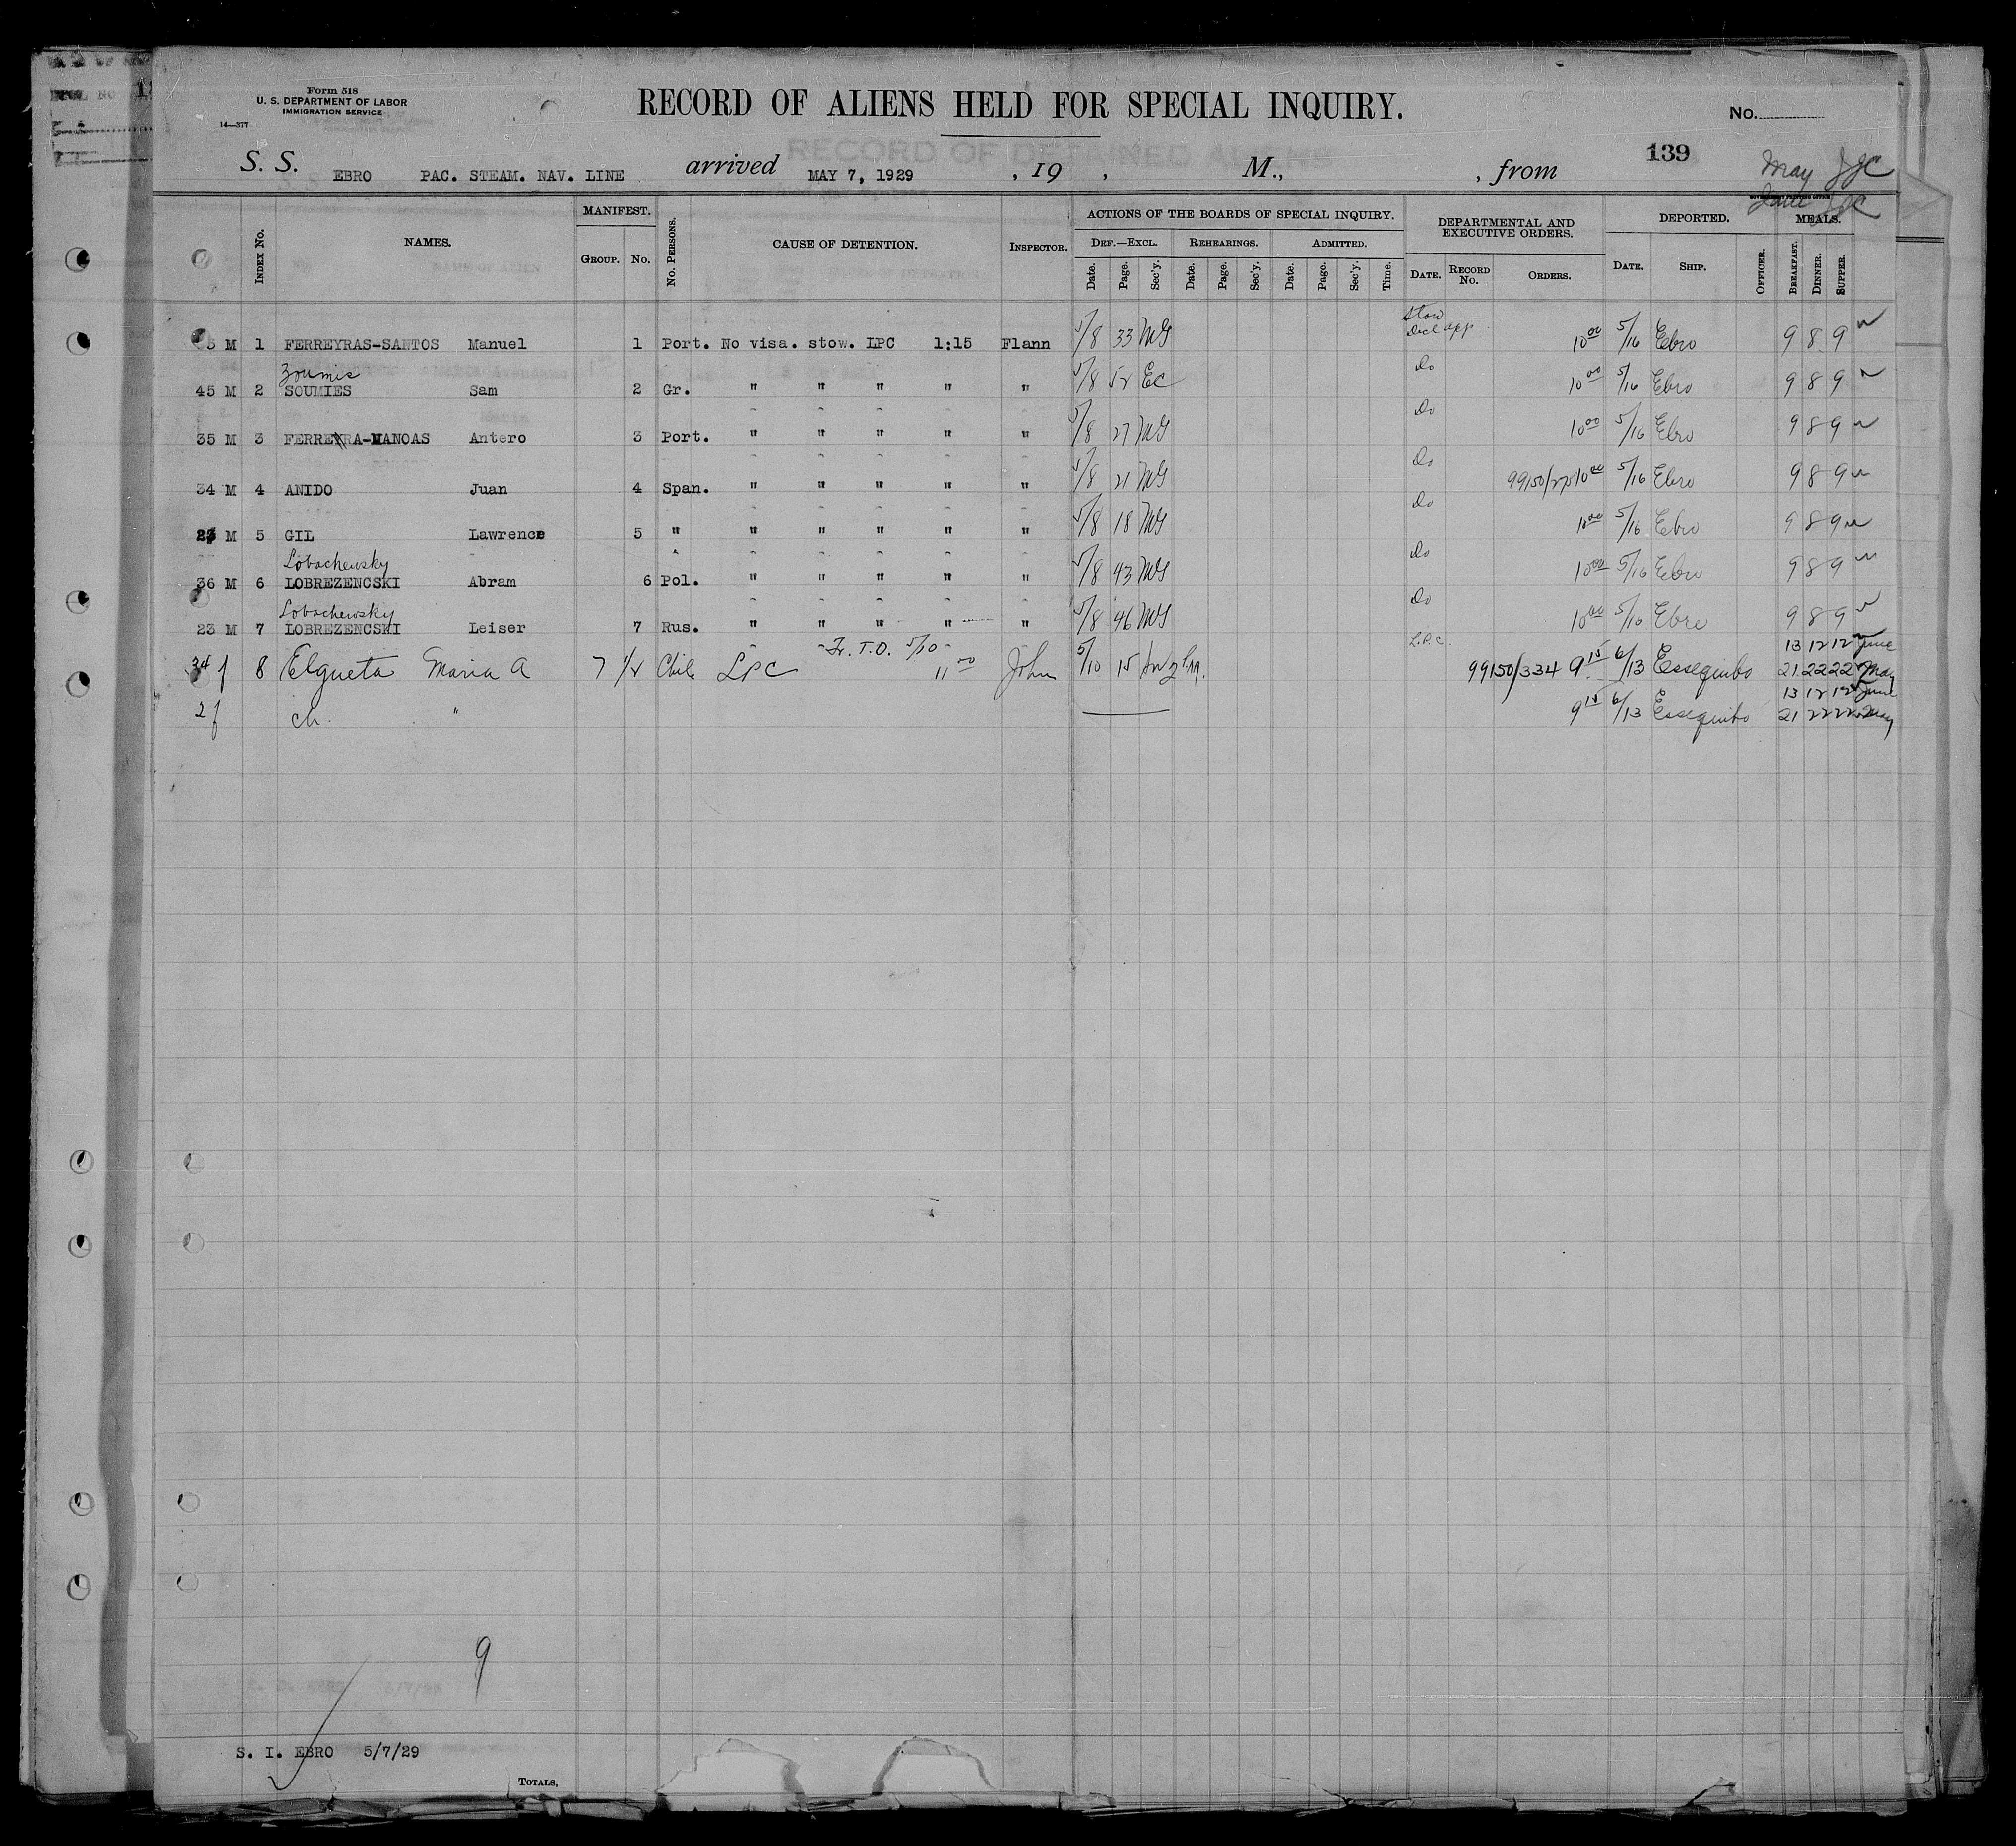 Form 518
U. S. DEPARTMENT OF LABOR
IMMIGRATION SERVICE
14—377
RECORD OF ALIENS HELD FOR SPECIAL INQUIRY.
No.
139
S. S. EBRO PAC. STEAM. NAV. LINE arrived MAY 7, 1929 , 19 , M., , from
May JJC
June JJC
INDEX No. NAMES. MANIFEST. GROUP. No. No. PERSONS. CAUSE OF DETENTION. INSPECTOR. ACTIONS OF THE BOARDS OF SPECIAL INQUIRY. DEPARTMENTAL AND EXECUTIVE ORDERS. DEPORTED. MEALS.
DEF.—EXCL. REHEARINGS. ADMITTED.
Date. Page. Sec'y. Date. Page. Sec'y. Date. Page. Sec'y. Time. DATE. RECORD No. ORDERS. DATE. SHIP. OFFICER. BREAKFAST. DINNER. SUPPER.
Stow
Decl app
M 1 FERREYRAS-SANTOS Manuel 1 Port. No visa. stow. LPC 1:15 Flann 5/8 33 MG 10 00 5/16 Ebro 9 8 9
Zoumis
45 M 2 SOUMIES Sam 2 Gr. " " " " " 5/8 52 EC Do 10 00 5/16 Ebro 9 8 9
35 M 3 FERREYRA-MANOAS Antero 3 Port. " " " " " 5/8 27 MG Do 10 00 5/16 Ebro 9 8 9
34 M 4 ANIDO Juan 4 Span. " " " " " 5/8 21 MG Do 10 00 5/16 Ebro 9 8 9
M 5 GIL Lawrence 5 " " " " " " 5/8 18 MG Do 10 00 5/16 Ebro 9 8 9
Lobachewsky
36 M 6 LOBREZENCSKI Abram 6 Pol. " " " " " 5/8 43 MG Do 10 00 5/16 Ebro 9 8 9
Lobachewsky
23 M 7 LOBREZENCSKI Leiser 7 Rus. " " " " " 5/8 46 MG Do 10 00 5/16 Ebro 9 8 9
Fr. T.O. 5/10 L.P.C. 13 12 12 June
34 f 8 Elgueta Maria A 7 Chile LPC 11 00 John 5/10 15 99150/334 9 15 6/13 Essequibo 21 22 22 May
13 12 12 June
2 f ch. " 9 15 6/13 Essequibo 21 22 22 May
9
S. I. EBRO 5/7/29
TOTALS,